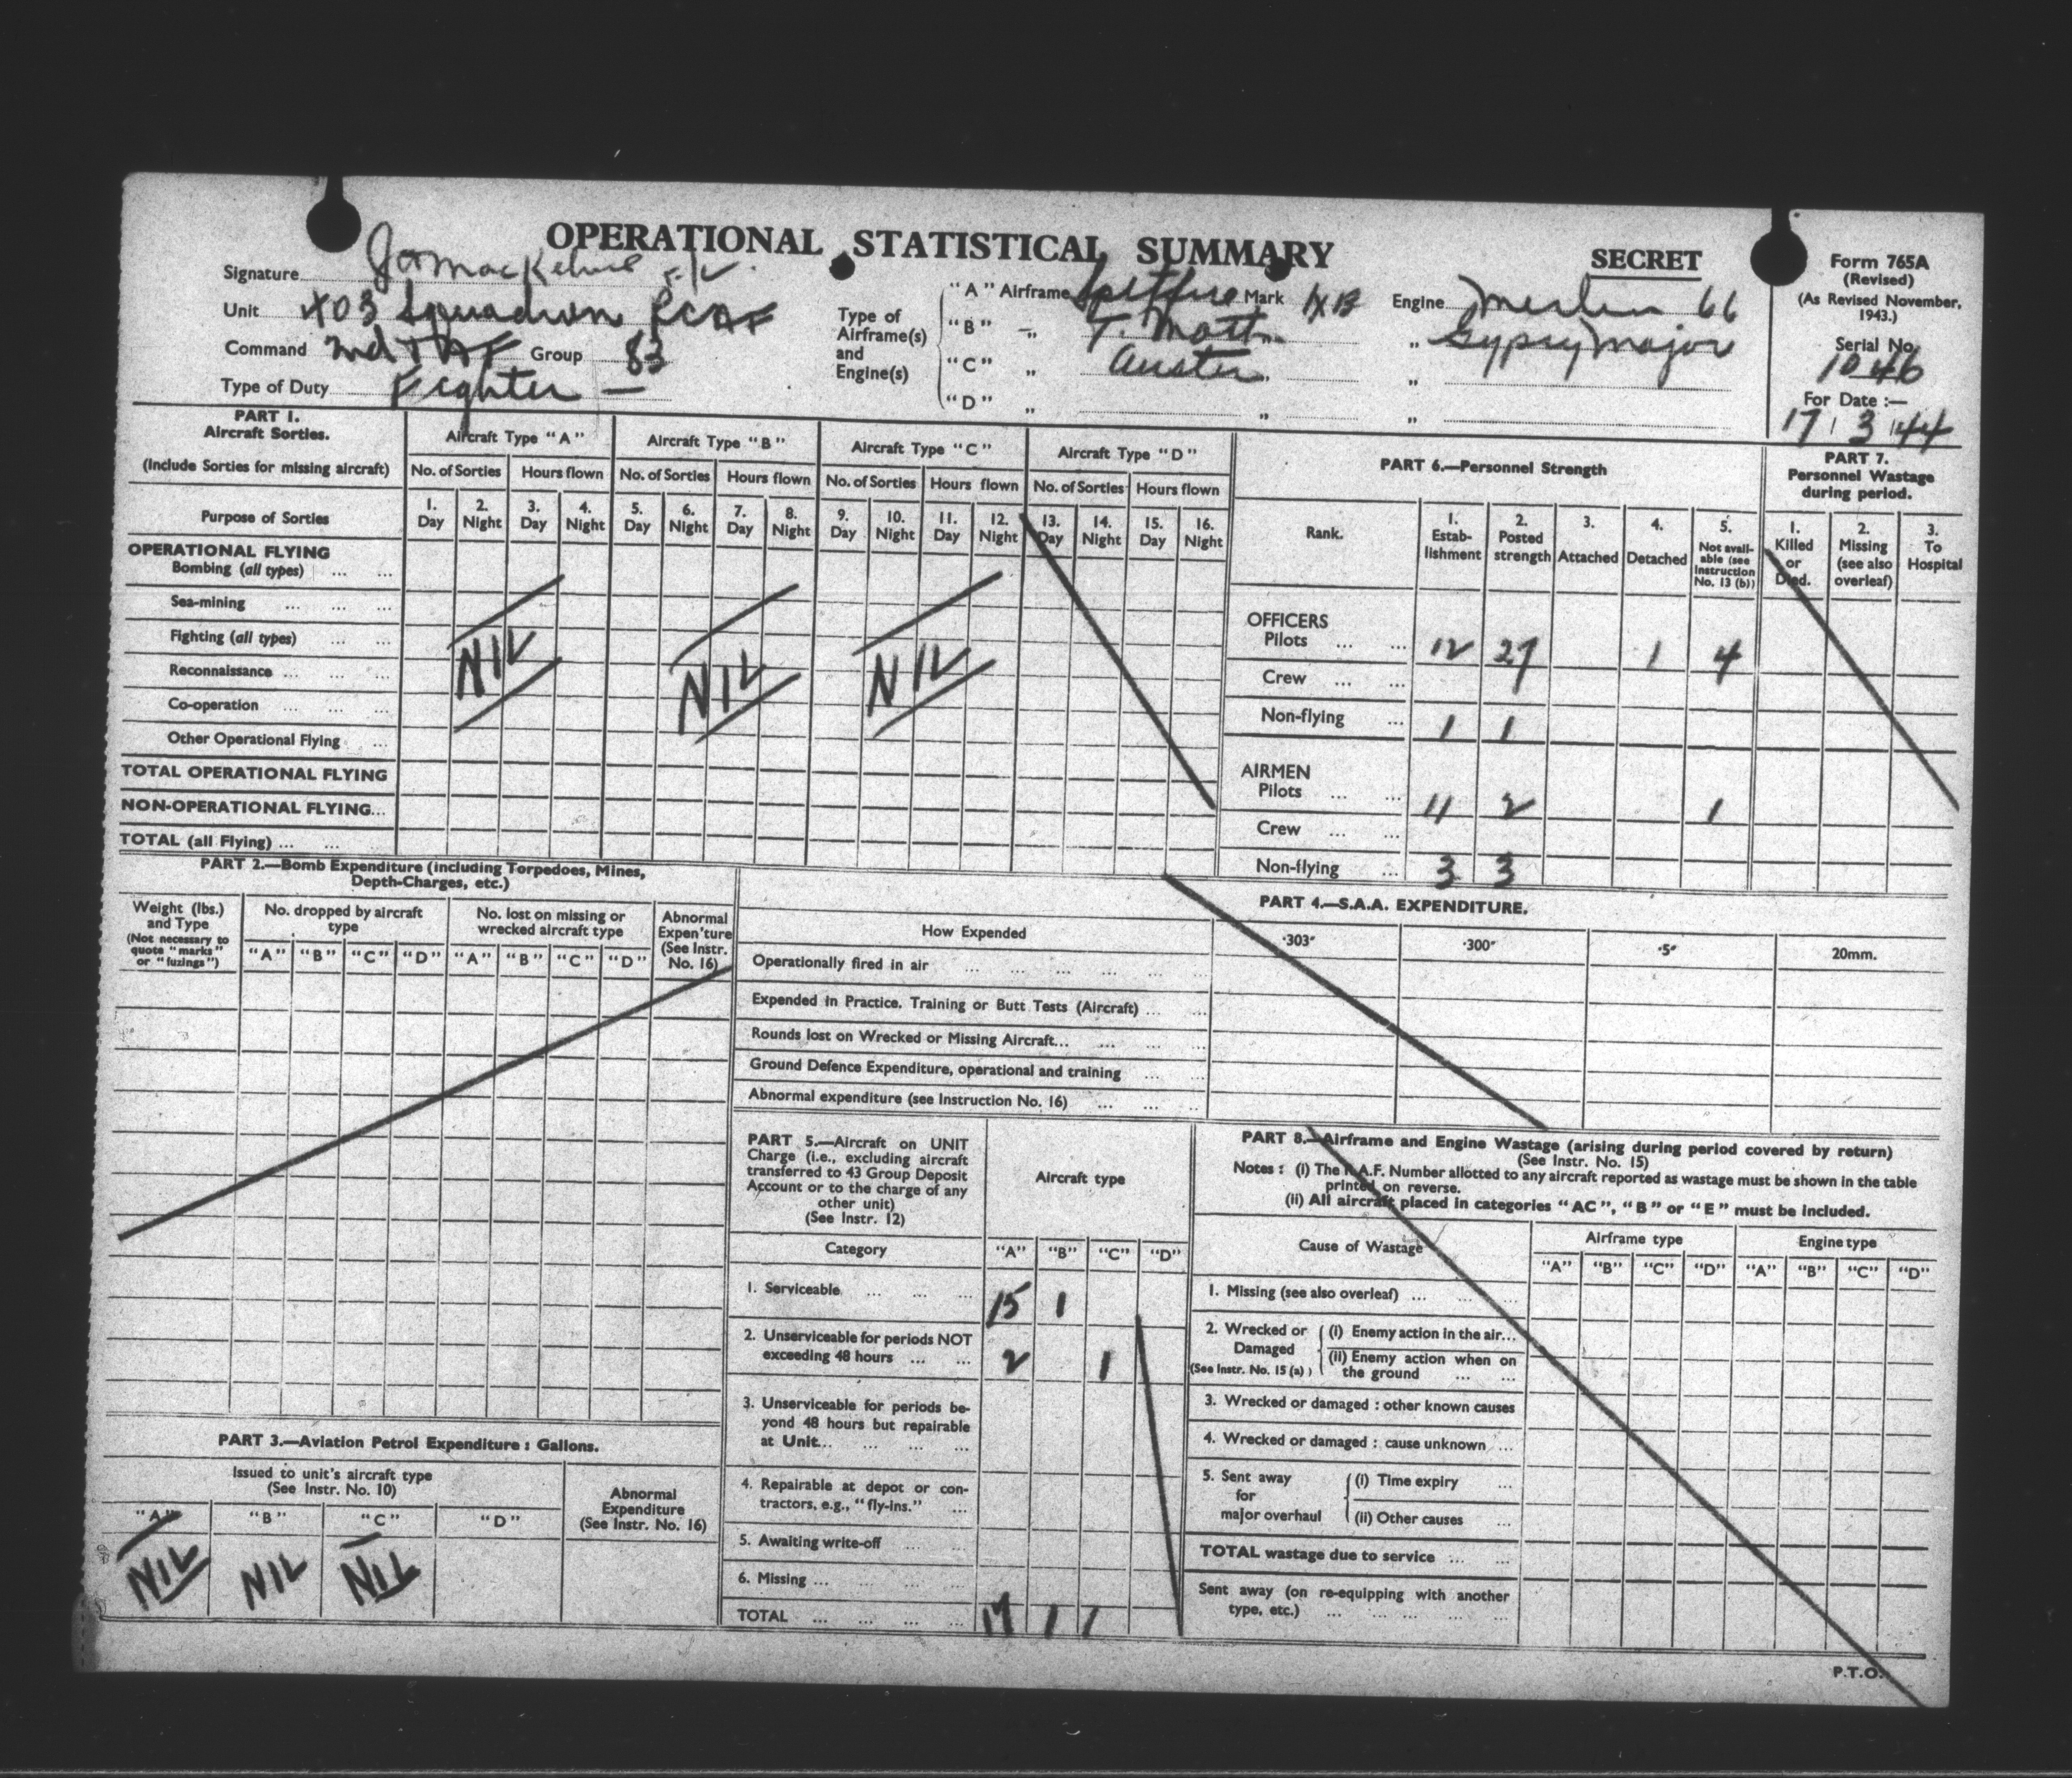 OPERATIONAL STATISTICAL SUMMARY
SECRET
Form 765A
(Revised)
(As Revised November, 1943.)
Serial No.
1046
For Date :—
17 3 44
Signature F/L
Unit 403 Squadron RCAF
Command 2nd TAF Group 83
Type of Duty Fighter —
Type of Airframe(s) and Engine(s)
"A" Airframe Spitfire Mark IXB Engine Merlin 66
"B" — „ T. Moth „ Gypsy Major
"C" „ Auster „ „
"D" „ „ „
PART 1.
Aircraft Sorties.
(Include Sorties for missing aircraft)
Purpose of Sorties
Aircraft Type "A" Aircraft Type "B" Aircraft Type "C" Aircraft Type "D"
No. of Sorties Hours flown No. of Sorties Hours flown No. of Sorties Hours flown No. of Sorties Hours flown
1. Day 2. Night 3. Day 4. Night 5. Day 6. Night 7. Day 8. Night 9. Day 10. Night 11. Day 12. Night 13. Day 14. Night 15. Day 16. Night
OPERATIONAL FLYING
Bombing (all types) ... ...
Sea-mining ... ... ...
Fighting (all types) ... ...
Reconnaissance ... ... ...
Co-operation ... ... ...
Other Operational Flying ...
NIL NIL NIL
TOTAL OPERATIONAL FLYING
NON-OPERATIONAL FLYING...
TOTAL (all Flying) ... ...
PART 6.—Personnel Strength
Rank.
1. Estab-lishment
2. Posted strength
3. Attached
4. Detached
5. Not avail-able (see Instruction No. 13 (b))
OFFICERS
Pilots ... ... 12 27 1 4
Crew ... ...
Non-flying ... 1 1
AIRMEN
Pilots ... ... 11 2 1
Crew ... ...
Non-flying ... 3 3
PART 7.
Personnel Wastage
during period.
1. Killed or Died.
2. Missing (see also overleaf)
3. To Hospital
PART 2.—Bomb Expenditure (including Torpedoes, Mines,
Depth-Charges, etc.)
Weight (lbs.)
and Type
(Not necessary to
quote "marks"
or "fuzings")
No. dropped by aircraft
type
No. lost on missing or
wrecked aircraft type
Abnormal
Expen'ture
(See Instr.
No. 16)
"A" "B" "C" "D" "A" "B" "C" "D"
PART 4.—S.A.A. EXPENDITURE.
How Expended ·303″ ·300″ ·5″ 20mm.
Operationally fired in air ... ... ... ... ... ...
Expended in Practice, Training or Butt Tests (Aircraft) ... ...
Rounds lost on Wrecked or Missing Aircraft... ... ... ...
Ground Defence Expenditure, operational and training ... ...
Abnormal expenditure (see Instruction No. 16) ... ... ..
PART 5.—Aircraft on UNIT
Charge (i.e., excluding aircraft
transferred to 43 Group Deposit
Account or to the charge of any
other unit)
(See Instr. 12)
Aircraft type
Category "A" "B" "C" "D"
1. Serviceable ... ... ... 15 1
2. Unserviceable for periods NOT
exceeding 48 hours ... ... 2 1
3. Unserviceable for periods be-
yond 48 hours but repairable
at Unit... ... ... ...
4. Repairable at depot or con-
tractors, e.g., "fly-ins." ...
5. Awaiting write-off ... ...
6. Missing ... ... ... ...
TOTAL ... ... ... ... 17 1 1
PART 8.—Airframe and Engine Wastage (arising during period covered by return)
(See Instr. No. 15)
Notes : (i) The R.A.F. Number allotted to any aircraft reported as wastage must be shown in the table
printed on reverse.
(ii) All aircraft placed in categories "AC", "B" or "E" must be included.
Cause of Wastage Airframe type Engine type
"A" "B" "C" "D" "A" "B" "C" "D"
1. Missing (see also overleaf) ... ... ...
2. Wrecked or Damaged
(See Instr. No. 15 (a))
(i) Enemy action in the air...
(ii) Enemy action when on
the ground ... ...
3. Wrecked or damaged : other known causes
4. Wrecked or damaged : cause unknown ...
5. Sent away
for
major overhaul
(i) Time expiry ...
(ii) Other causes ...
TOTAL wastage due to service ... ...
Sent away (on re-equipping with another
type, etc.) ... ... ... ... ...
PART 3.—Aviation Petrol Expenditure : Gallons.
Issued to unit's aircraft type
(See Instr. No. 10)
Abnormal
Expenditure
(See Instr. No. 16)
"A" "B" "C" "D"
NIL NIL NIL
P.T.O.